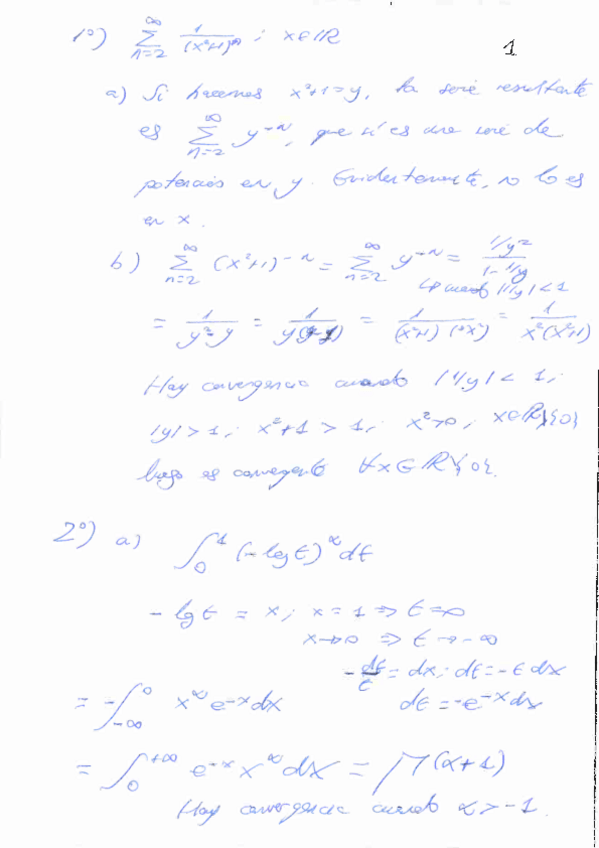 1º) \sum_{n=2}^{\infty} \frac{1}{(x^2+1)^n} ; x∈ℝ
1
a) Si hacemos x²+1=y, la serie resultante
es \sum_{n=2}^{\infty} y^{-n}, que sí es una serie de
potencias en y. Evidentemente, no lo es
en x.
b) \sum_{n=2}^{\infty} (x²+1)^{-n} = \sum_{n=2}^{\infty} y^{-n} = \frac{1/y²}{1-1/y}
↳ cuando |1/y|<1
= \frac{1}{y²-y} = \frac{1}{y(y-1)} = \frac{1}{(x²+1)(x²)} = \frac{1}{x²(x²+1)}
Hay convergencia cuando |1/y| < 1;
|y|>1; x²+1>1; x²>0; x∈ℝ\{0}
luego es convergente ∀x∈ℝ\{0}.
2º) a) \int_0^1 (-log t)^α dt
-lg t = x; x=1 ⇒ t=0
x→0 ⇒ t→-∞
-\frac{dt}{t} = dx; dt=-t dx
= -\int_{-∞}^0 x^α e^{-x} dx dt=-e^{-x}dx
= \int_0^{+∞} e^{-x} x^α dx = Γ(α+1)
Hay convergencia cuando α>-1.